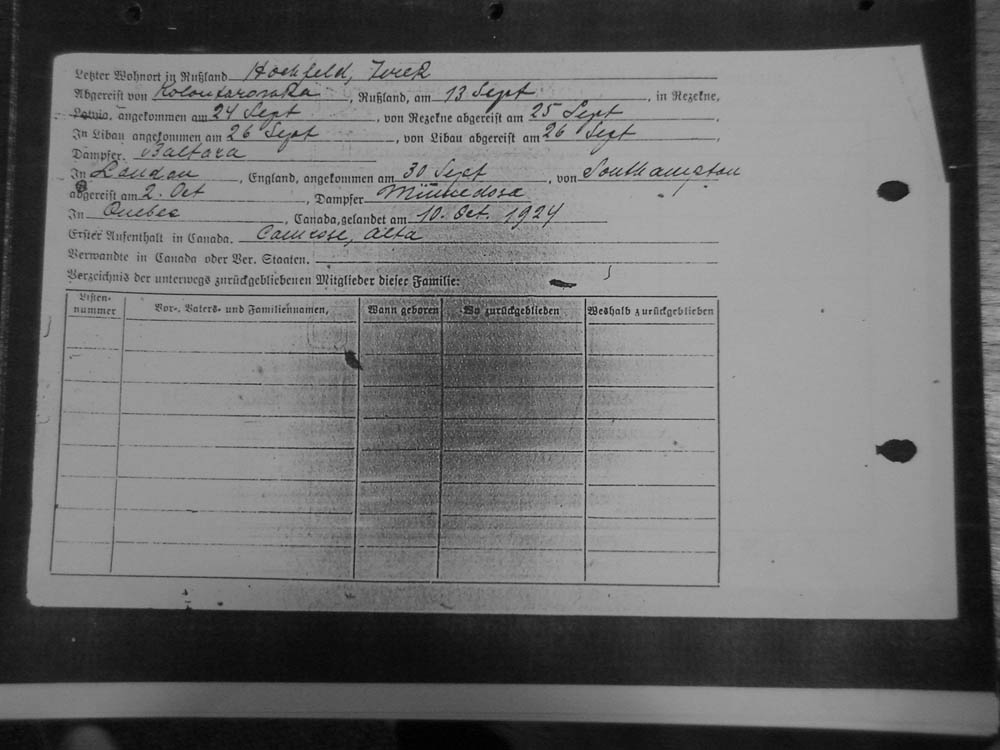 Letzter Wohnort in Rußland Hochfeld, Jwek
Abgereist von , Rußland, am 13 Sept , in Rezekne,
Latvia, angekommen am 24 Sept , von Rezekne abgereist am 25 Sept
In Libau angekommen am 26 Sept , von Libau abgereist am 26 Sept
Dampfer. Baltara
In London , England, angekommen am 30 Sept , von Southampton
abgereist am 2. Oct , Dampfer Minnedosa
In Quebec , Canada, gelandet am 10. Oct. 1924
Erster Aufenthalt in Canada. Camrose, Alta
Verwandte in Canada oder Ver. Staaten.
Verzeichnis der unterwegs zurückgebliebenen Mitglieder dieser Familie:
Listen-
nummer Vor-, Vaters- und Familiennamen, Wann geboren Wo zurückgeblieben Weshalb zurückgeblieben